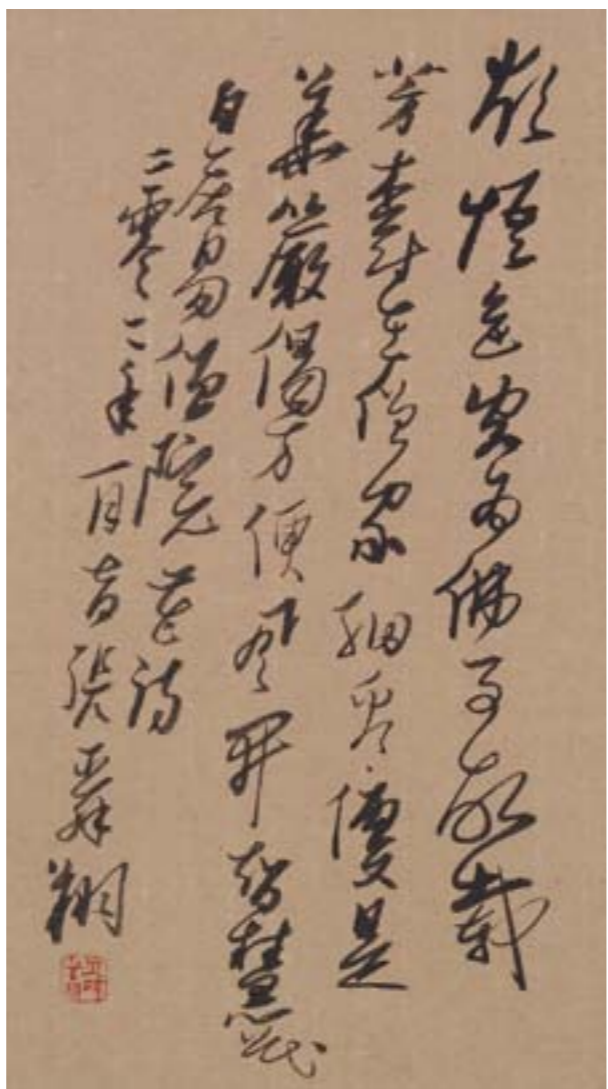 欲悟色空為佛事故栽
芳樹在僧家細看便是
華嚴偈方便風開智慧花
白居易僧院花詩
二零一二年一月 張 翔